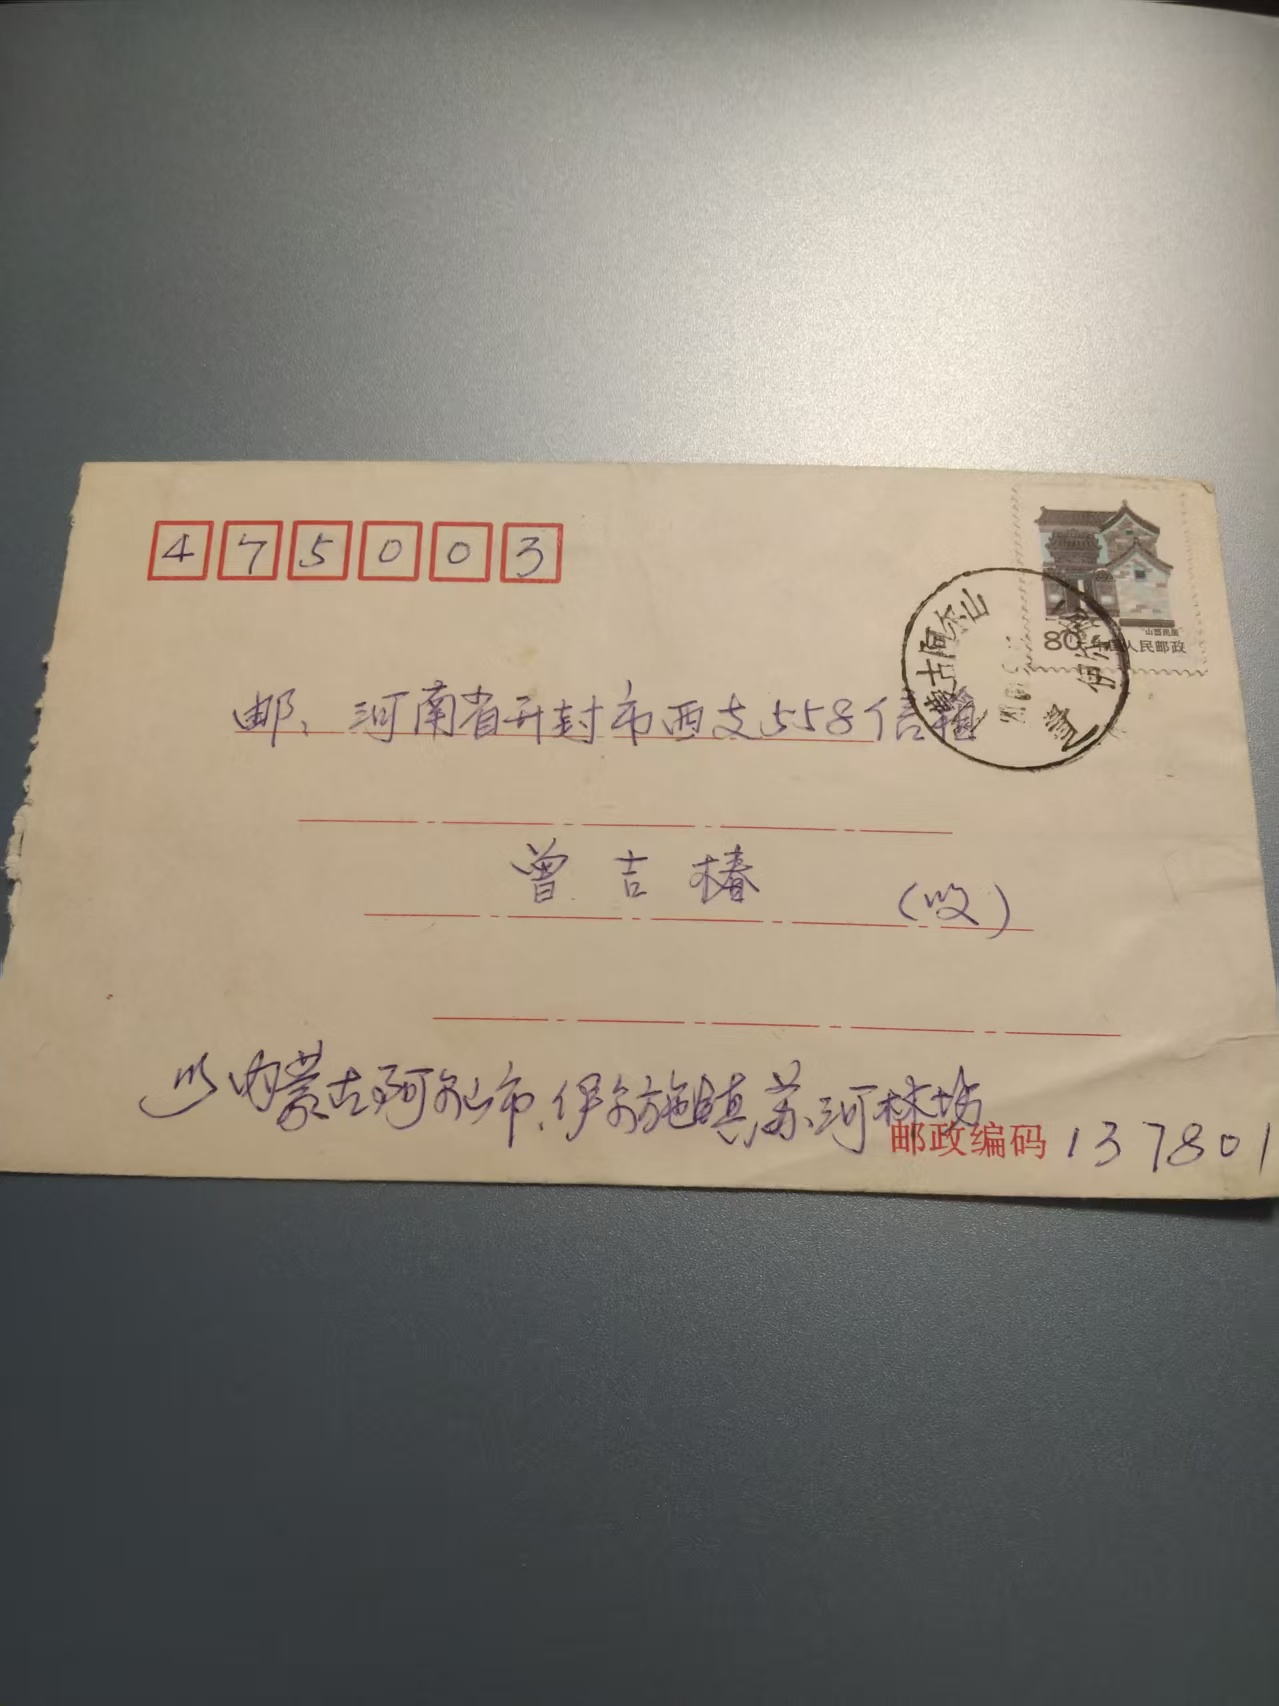 475003
山西民居
80 中国人民邮政
内蒙古阿尔山
伊尔施
邮、河南省开封市西支558信箱
曾吉椿 (收)
内蒙古阿尔山市、伊尔施镇苏河林场
邮政编码 137801